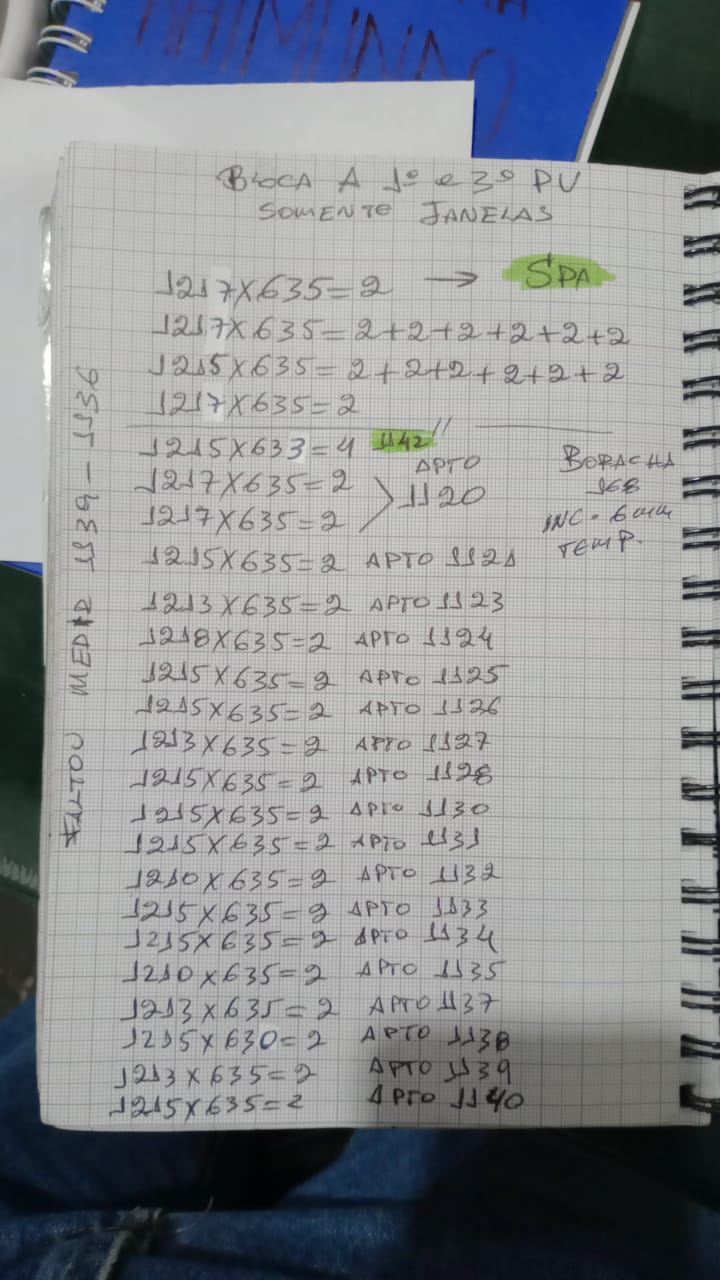 BLOCA A 1º e 3º PV
SOMENTE JANELAS
1217X635=2 → SPA
1217X635=2+2+2+2+2+2
1215X635=2+2+2+2+2+2
1217X635=2
1215X633=4 1142
1217X635=2
1217X635=2
APTO
1120
BORACHA
168
INC - 6mm
TEMP.
1215X635=2 APTO 1121
1213X635=2 APTO 1123
1218X635=2 APTO 1124
1215X635=2 APTO 1125
1215X635=2 APTO 1126
1213X635=2 APTO 1127
1215X635=2 APTO 1128
1215X635=2 APTO 1130
1215X635=2 APTO 1131
1210X635=2 APTO 1132
1215X635=2 APTO 1133
1215X635=2 APTO 1134
1210X635=2 APTO 1135
1213X635=2 APTO 1137
1215X630=2 APTO 1138
1213X635=2 APTO 1139
1215X635=2 APTO 1140
FALTOU MEDIR 1139-1136